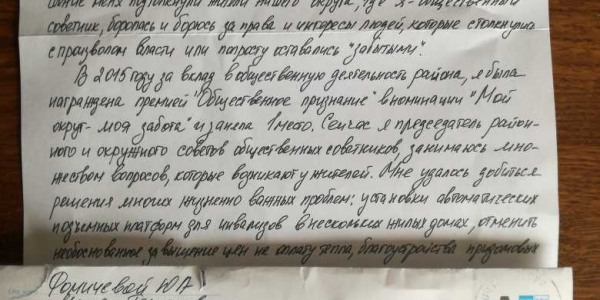 меня подтолкнули жители нашего округа, где я - общественный
советник, боролась и борюсь за права и интересы людей, которые столкнулись
с произволом власти или попросту оставались "забытыми".
В 2015 году за вклад в общественную деятельность района, я была
награждена премией "Общественное признание" в номинации "Мой
округ - моя забота" и заняла 1 место. Сейчас я председатель район-
ного и окружного советов общественных советников, занимаюсь мно-
жеством вопросов, которые возникают у жителей. Мне удалось добиться
решения многих жизненно важных проблем: установки автоматических
подъемных платформ для инвалидов в нескольких жилых домах, отменить
необоснованное завышение цен на оплату тепла, благоустройства придомовых
Фомичевой Ю А